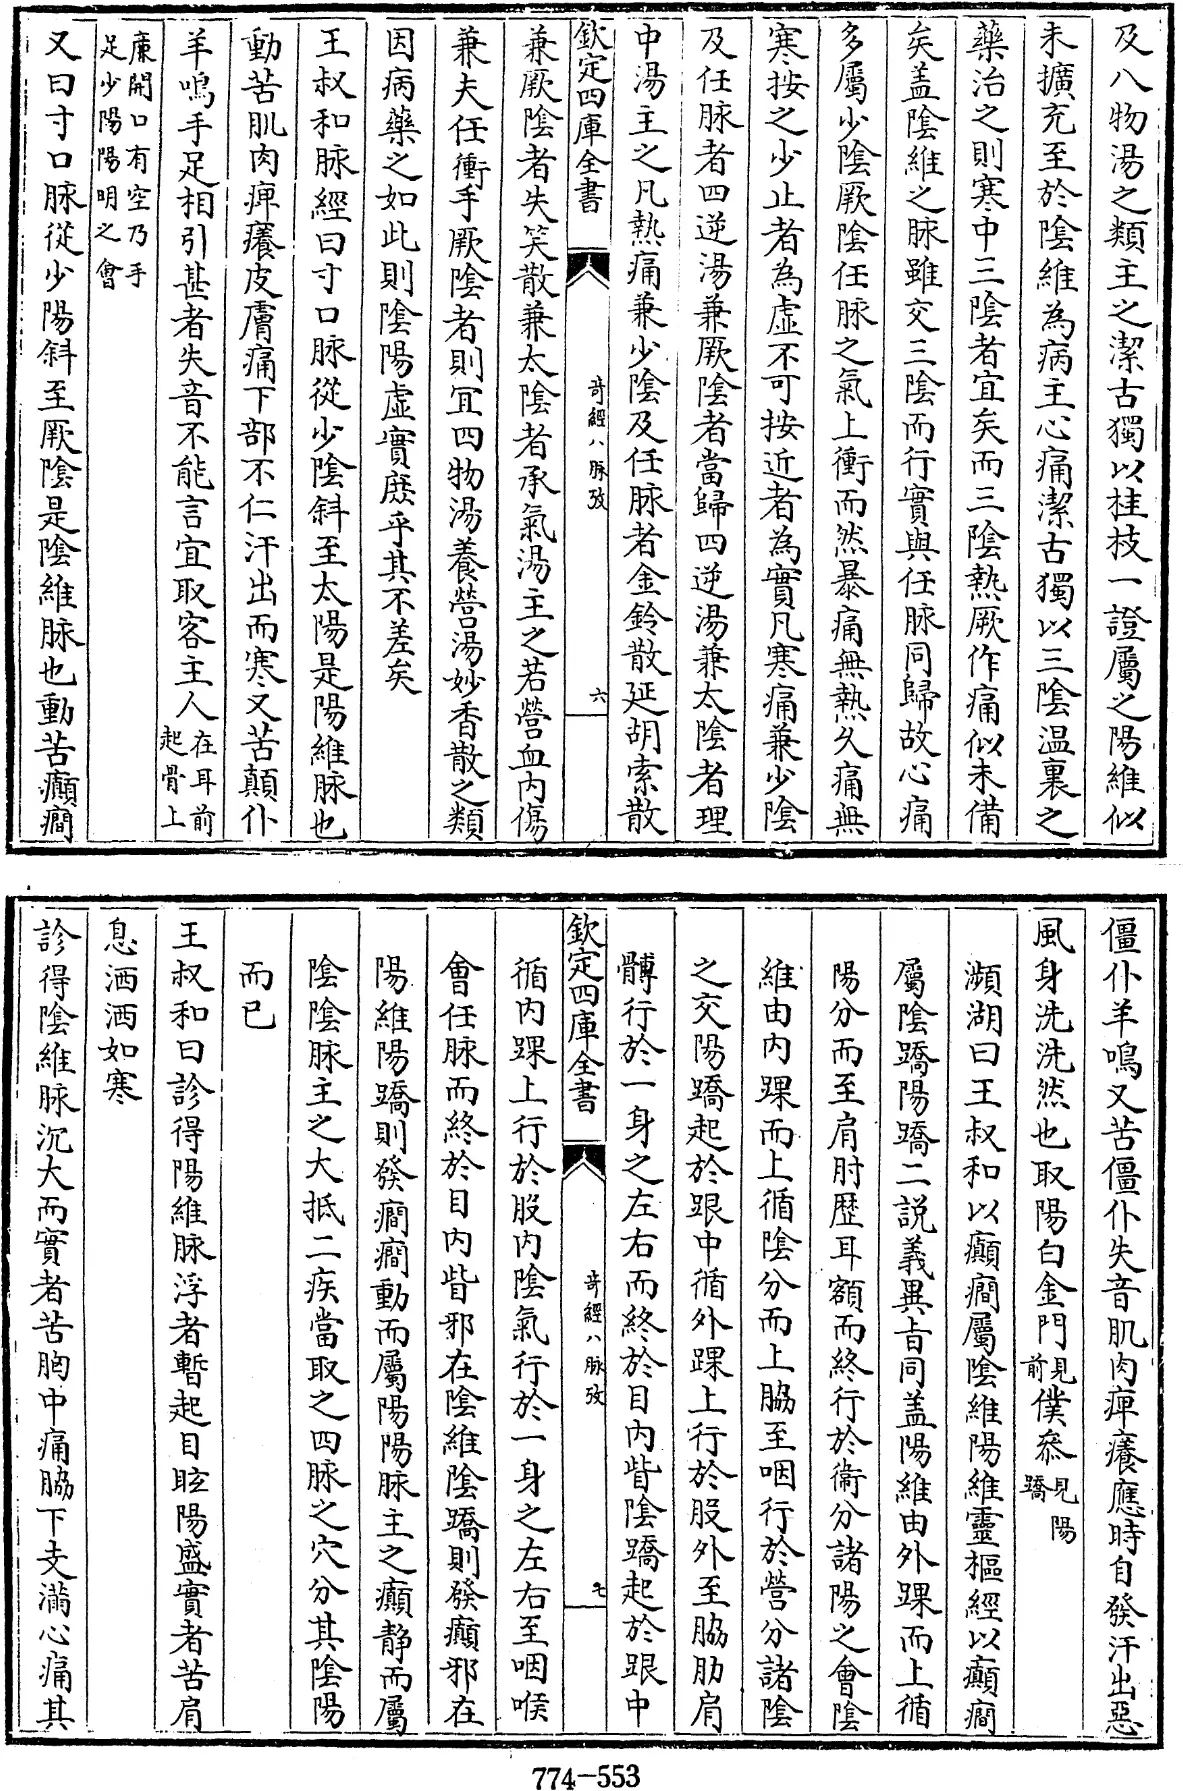 及八物湯之類主之潔古獨以桂枝一證屬之陽維似
未擴充至於陰維為病主心痛潔古獨以三陰温裏之
藥治之則寒中三陰者宜矣而三陰熱厥作痛似未備
矣盖陰維之脉雖交三陰而行實與任脉同歸故心痛
多屬少陰厥陰任脉之氣上衝而然暴痛無熱久痛無
寒按之少止者為虛不可按近者為實凡寒痛兼少陰
及任脉者四逆湯兼厥陰者當歸四逆湯兼太陰者理
中湯主之凡熱痛兼少陰及任脉者金鈴散延胡索散
欽定四庫全書 奇經八脉攷 六
兼厥陰者失笑散兼太陰者承氣湯主之若營血内傷
兼夫任衝手厥陰者則宜四物湯養營湯妙香散之類
因病藥之如此則陰陽虛實庶乎其不差矣
王叔和脉經曰寸口脉從少陰斜至太陽是陽維脉也
動苦肌肉痺癢皮膚痛下部不仁汗出而寒又苦顛仆
羊鳴手足相引甚者失音不能言宜取客主人在耳前起骨上
廉開口有空乃手足少陽陽明之會
又曰寸口脉從少陽斜至厥陰是陰維脉也動苦癲癎
僵仆羊鳴又苦僵仆失音肌肉痺癢應時自發汗出惡
風身洗洗然也取陽白金門見前僕參見陽蹻
瀕湖曰王叔和以癲癎屬陰維陽維靈樞經以癲癎
屬陰蹻陽蹻二説義異旨同盖陽維由外踝而上循
陽分而至肩肘歷耳額而終行於衞分諸陽之會陰
維由内踝而上循陰分而上脇至咽行於營分諸陰
之交陽蹻起於跟中循外踝上行於股外至脇肋肩
髆行於一身之左右而終於目内眥陰蹻起於跟中
欽定四庫全書 奇經八脉攷 七
循内踝上行於股内陰氣行於一身之左右至咽喉
會任脉而終於目内眥邪在陰維陰蹻則發癲邪在
陽維陽蹻則發癎癎動而屬陽陽脉主之癲静而屬
陰陰脉主之大抵二疾當取之四脉之穴分其陰陽
而已
王叔和曰診得陽維脉浮者暫起目眩陽盛實者苦肩
息洒洒如寒
診得陰維脉沉大而實者苦胸中痛脇下支滿心痛其
774-553